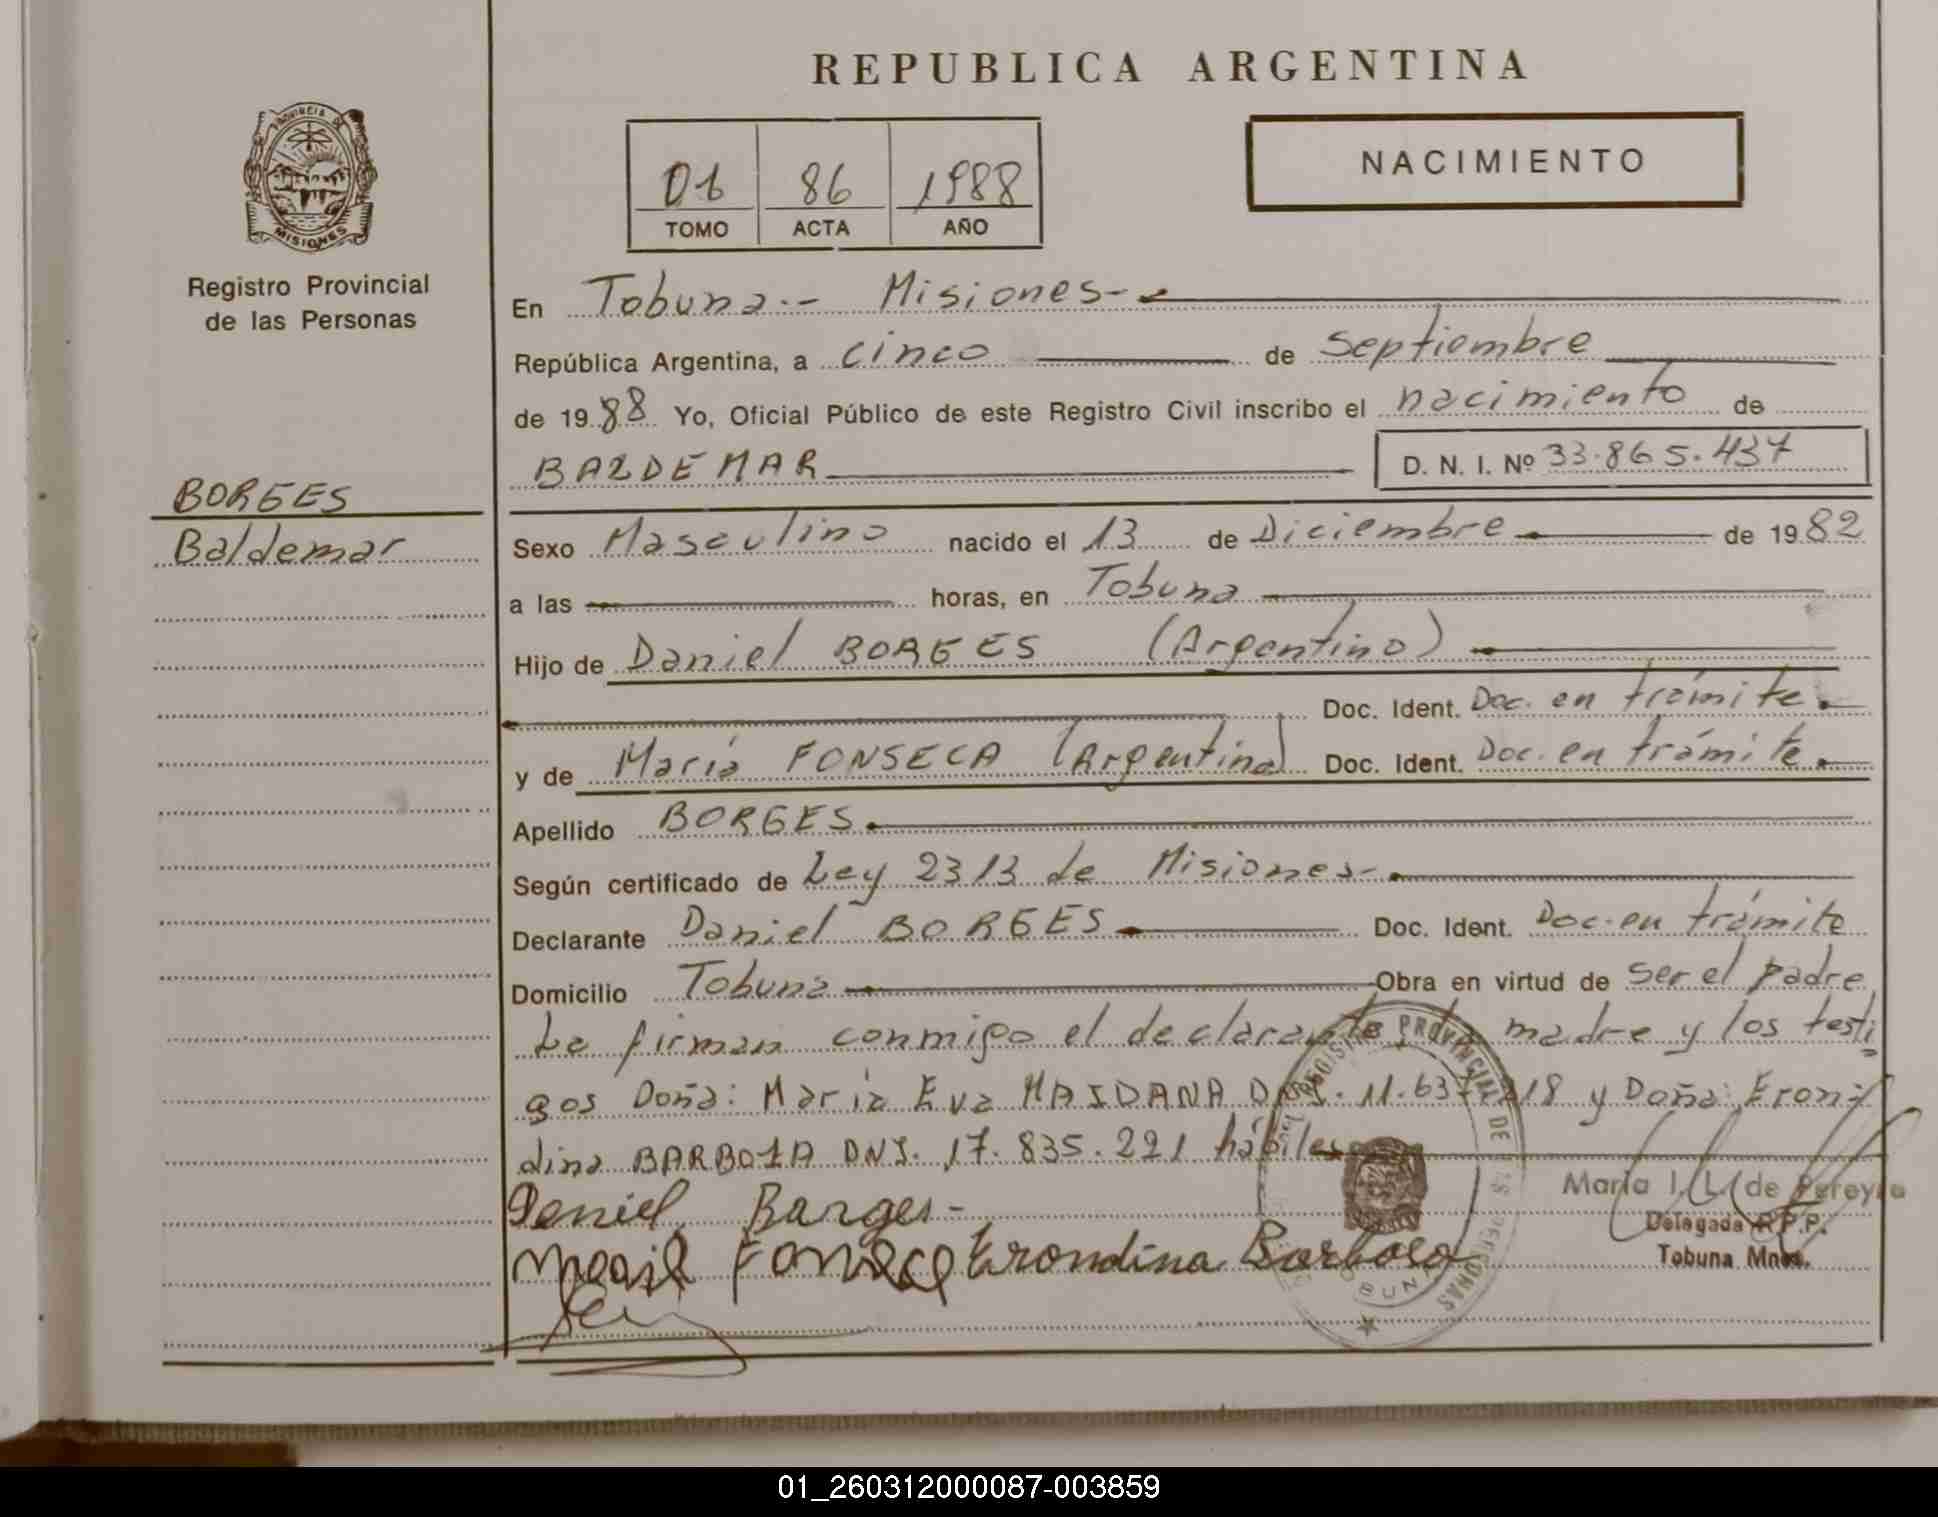 REPUBLICA ARGENTINA
PROVINCIA DE
MISIONES
Registro Provincial
de las Personas
BORGES
Baldemar
01 86 1988
TOMO ACTA AÑO
NACIMIENTO
En Tobuna.- Misiones-
República Argentina, a cinco de Septiembre
de 19 88 Yo, Oficial Público de este Registro Civil inscribo el nacimiento de
BALDEMAR D. N. I. Nº 33.865.437
Sexo Masculino nacido el 13 de Diciembre de 19 82
a las horas, en Tobuna
Hijo de Daniel BORGES (Argentino)
Doc. Ident. Doc. en trámite.
y de María FONSECA (Argentina) Doc. Ident. Doc. en trámite.
Apellido BORGES
Según certificado de Ley 2313 de Misiones-
Declarante Daniel BORGES Doc. Ident. Doc. en trámite
Domicilio Tobuna Obra en virtud de ser el padre
La firman conmigo el declarante la madre y los testi
gos Doña: María Eva MAIDANA DNI. 11.637. 18 y Doña: Eron-
dina BARBOZA DNI. 17.835.221 hábiles
Daniel Barges-
Fonseca Erondina Barboza
PROVINCIAL DE LAS PERSONAS
TOBUNA
María I. L. de Pereyra
Delegada R.P.P.
Tobuna Mnes.
01_260312000087-003859